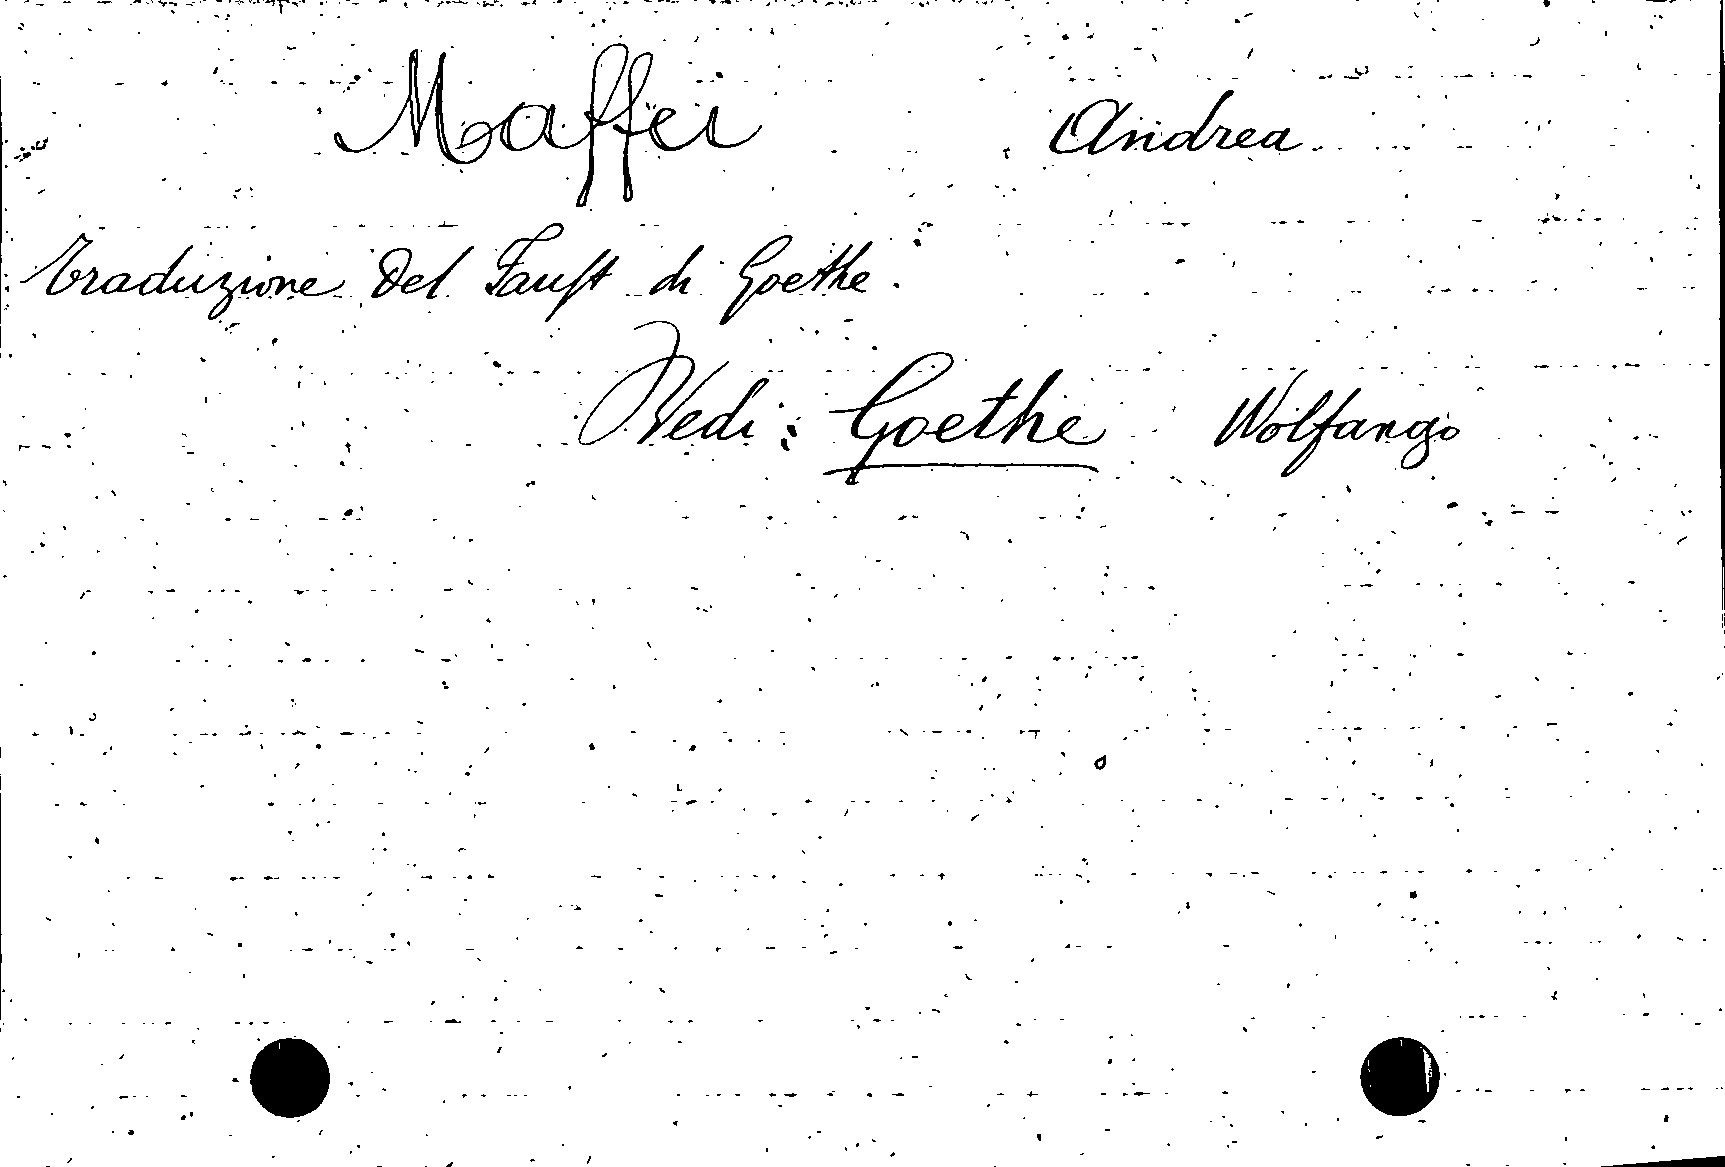 Maffei Andrea
Traduzione del Faust di Goethe.
Vedi: Goethe Wolfango